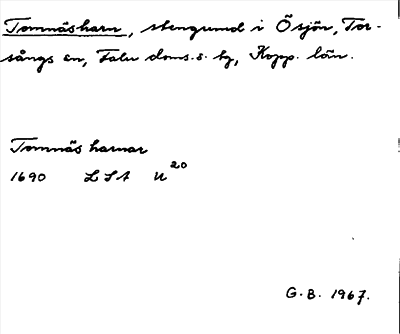 Tomnäsharn, stengrund i Ösjön, Tor-
sångs sn, Falu doms.s. bg, Kopp. län.
Tomnäs harnar
1690 LSA U 20
G.B. 1967.